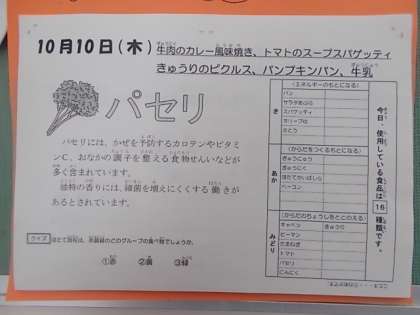 10月10日(木) 牛肉のカレー風味焼き、トマトのスープスパゲッティ
きゅうりのピクルス、パンプキンパン、牛乳
パセリ
パセリには、かぜを予防するカロテンやビタミ
ンC、おなかの調子を整える食物せんいなどが
多く含まれています。
独特の香りには、細菌を増えにくくする働きが
あるとされています。
クイズ
①赤 ②黄 ③緑
今日、使用している食品は 16 種類です。
き
(エネルギーのもとになる)
パン
サラダあぶら
スパゲッティ
オリーブ油
さとう
あか
(からだをつくるもとになる)
ぎゅうにゅう
ぎゅうにく
ベーコン
みどり
(からだのちょうしをととのえる)
キャベツ きゅうり
ピーマン
たまねぎ
トマト
パセリ
にんにく